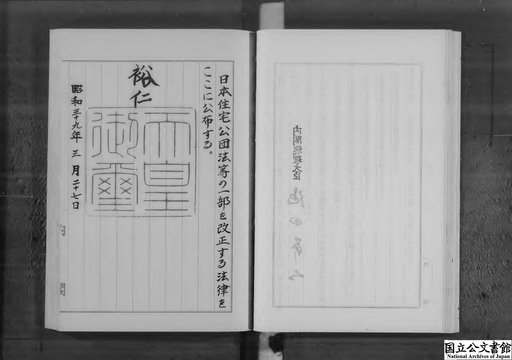 日本住宅公団法等の一部を改正する法律を
ここに公布する。
裕仁
天皇
御璽
昭和三十九年三月二十七日
内閣
国立公文書館
National Archives of Japan